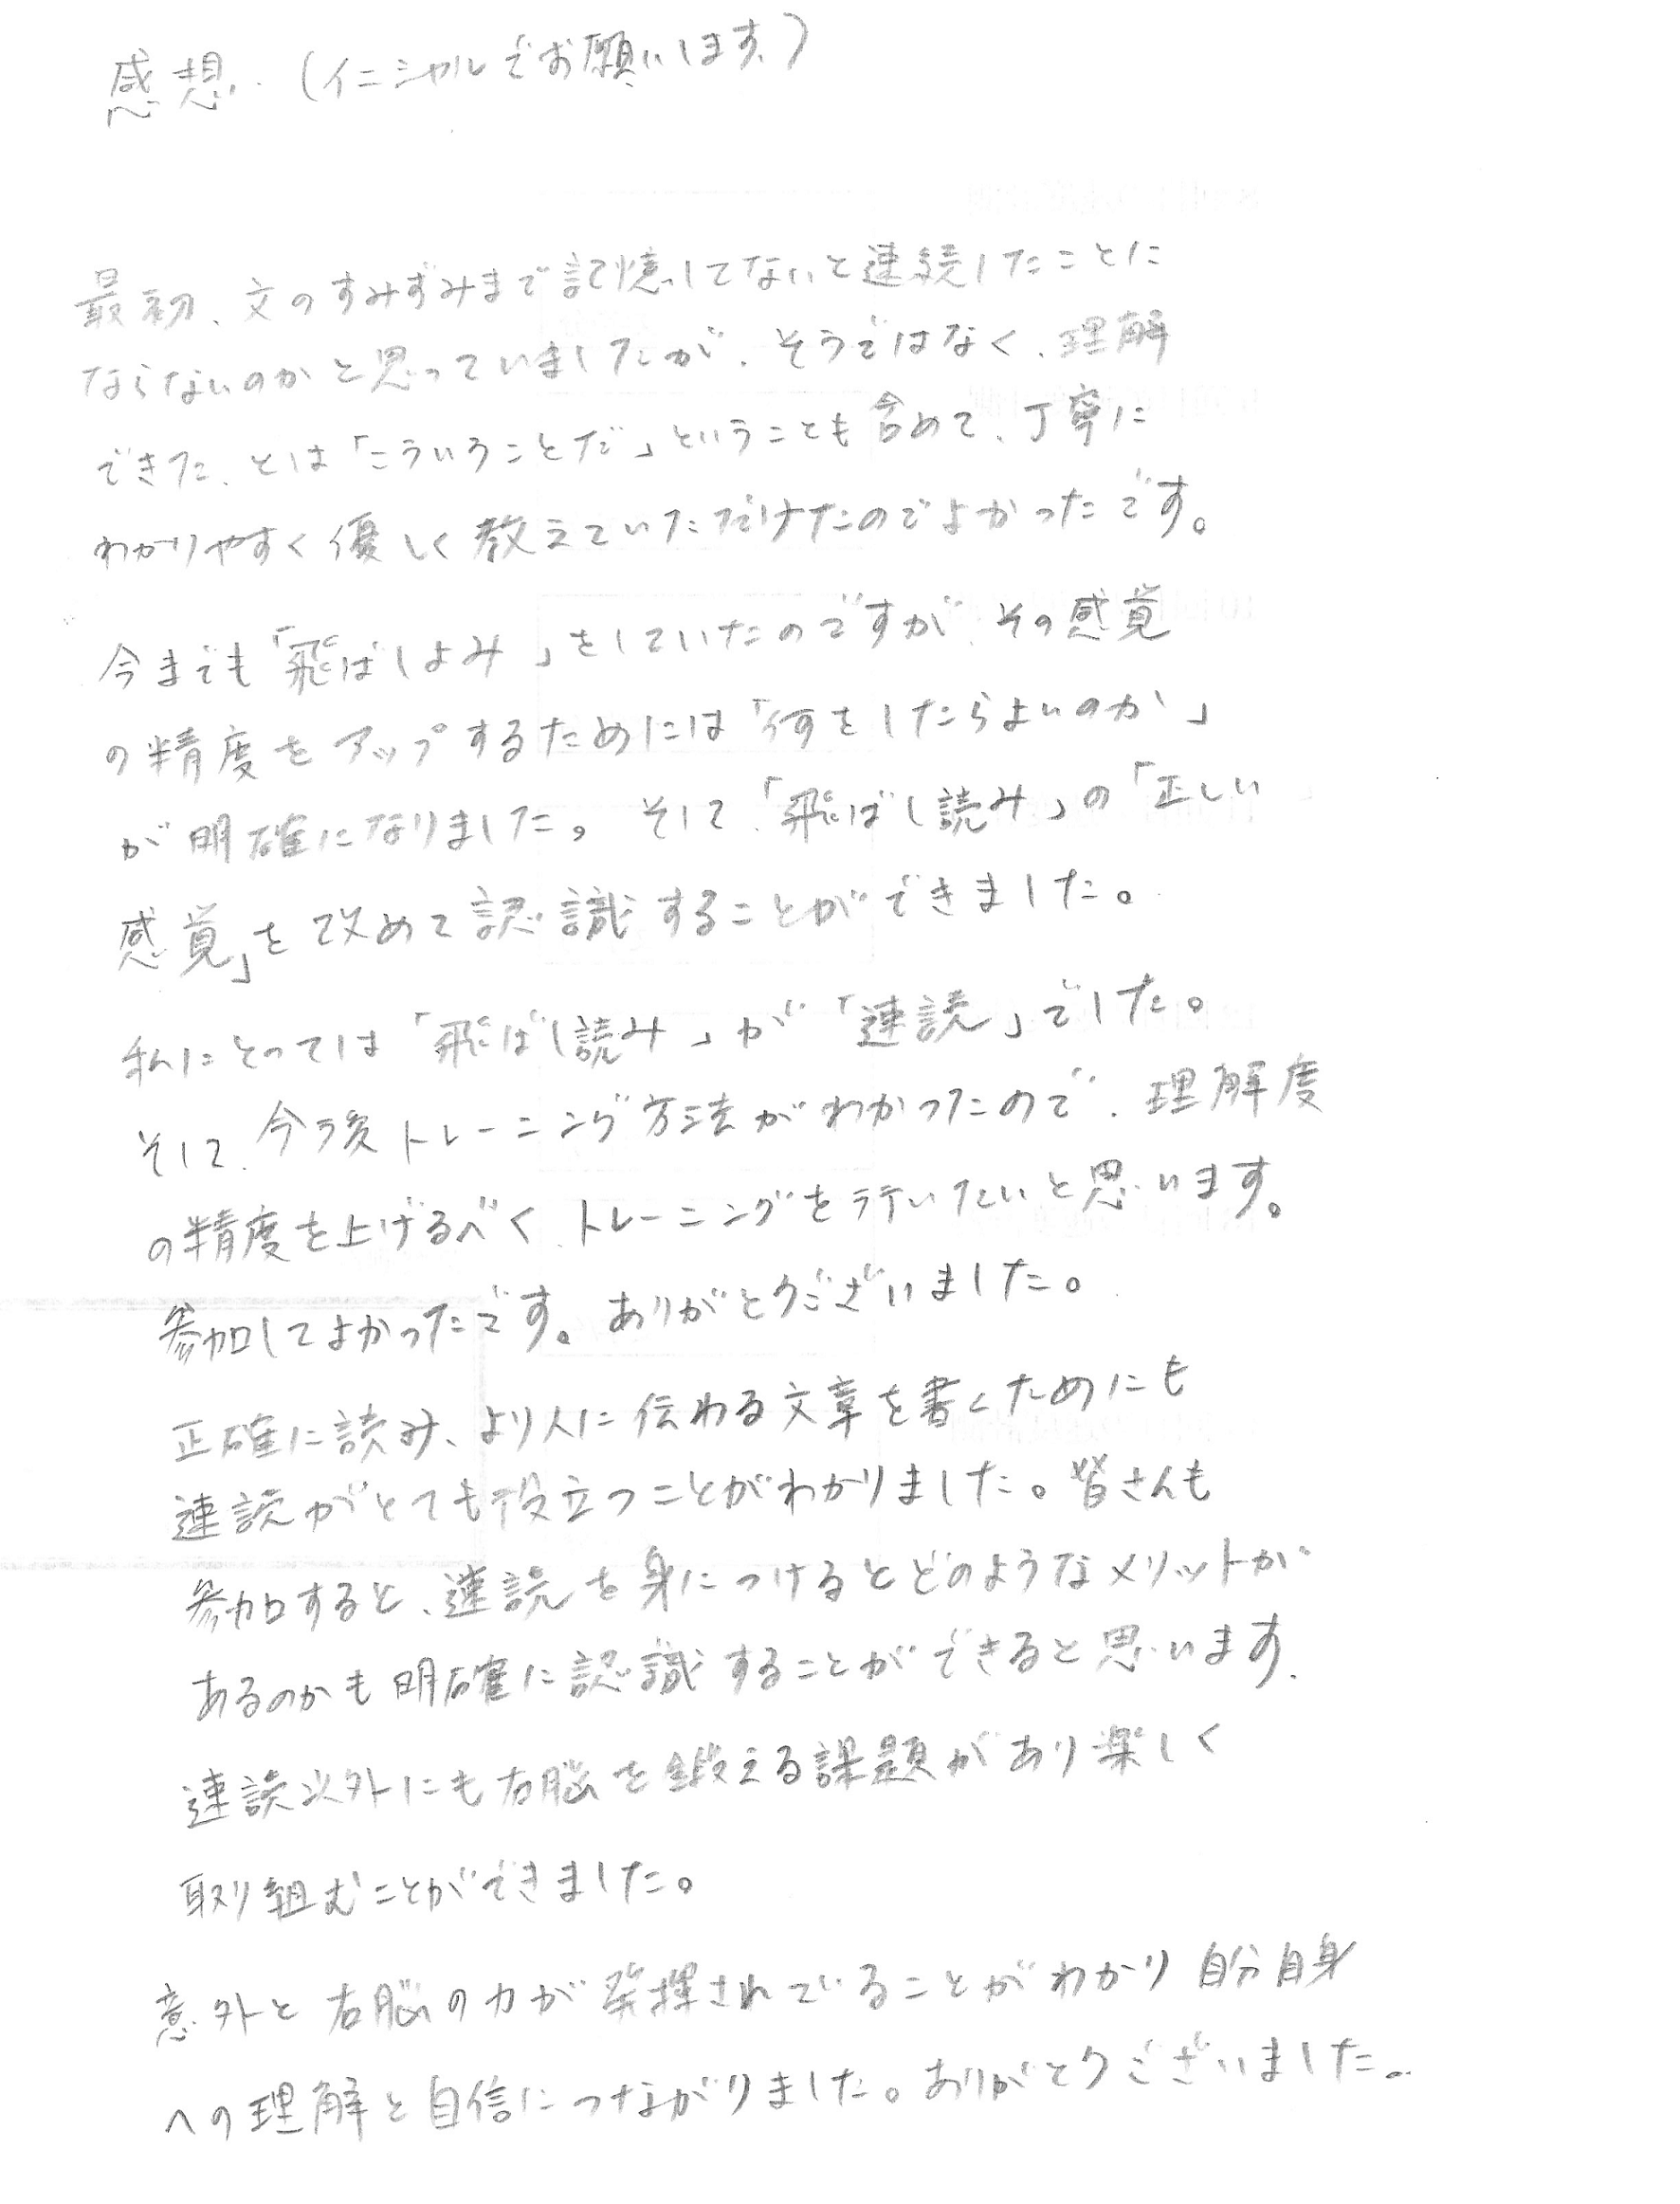 感想.（イニシャルでお願いします）
最初、文のすみずみまで記憶してないと速読したことに
ならないのかと思っていましたが、そうではなく、理解
できた、とは「こういうことだ」ということも含めて、丁寧に
わかりやすく優しく教えていただけたのでよかったです。
今までも「飛ばしよみ」をしていたのですが、その感覚
の精度をアップするためには「何をしたらよいのか」
が明確になりました。そして、「飛ばし読み」の「正しい
感覚」を改めて認識することができました。
私にとっては「飛ばし読み」が「速読」でした。
そして、今後トレーニング方法がわかったので、理解度
の精度を上げるべく、トレーニングを行いたいと思います。
参加してよかったです。ありがとうございました。
正確に読み、より人に伝わる文章を書くためにも
速読がとても役立つことがわかりました。皆さんも
参加すると、速読を身につけるとどのようなメリットが
あるのかも明確に認識することができると思います。
速読以外にも右脳を鍛える課題があり楽しく
取り組むことができました。
意外と右脳の力が発揮されていることがわかり自分自身
への理解と自信につながりました。ありがとうございました。